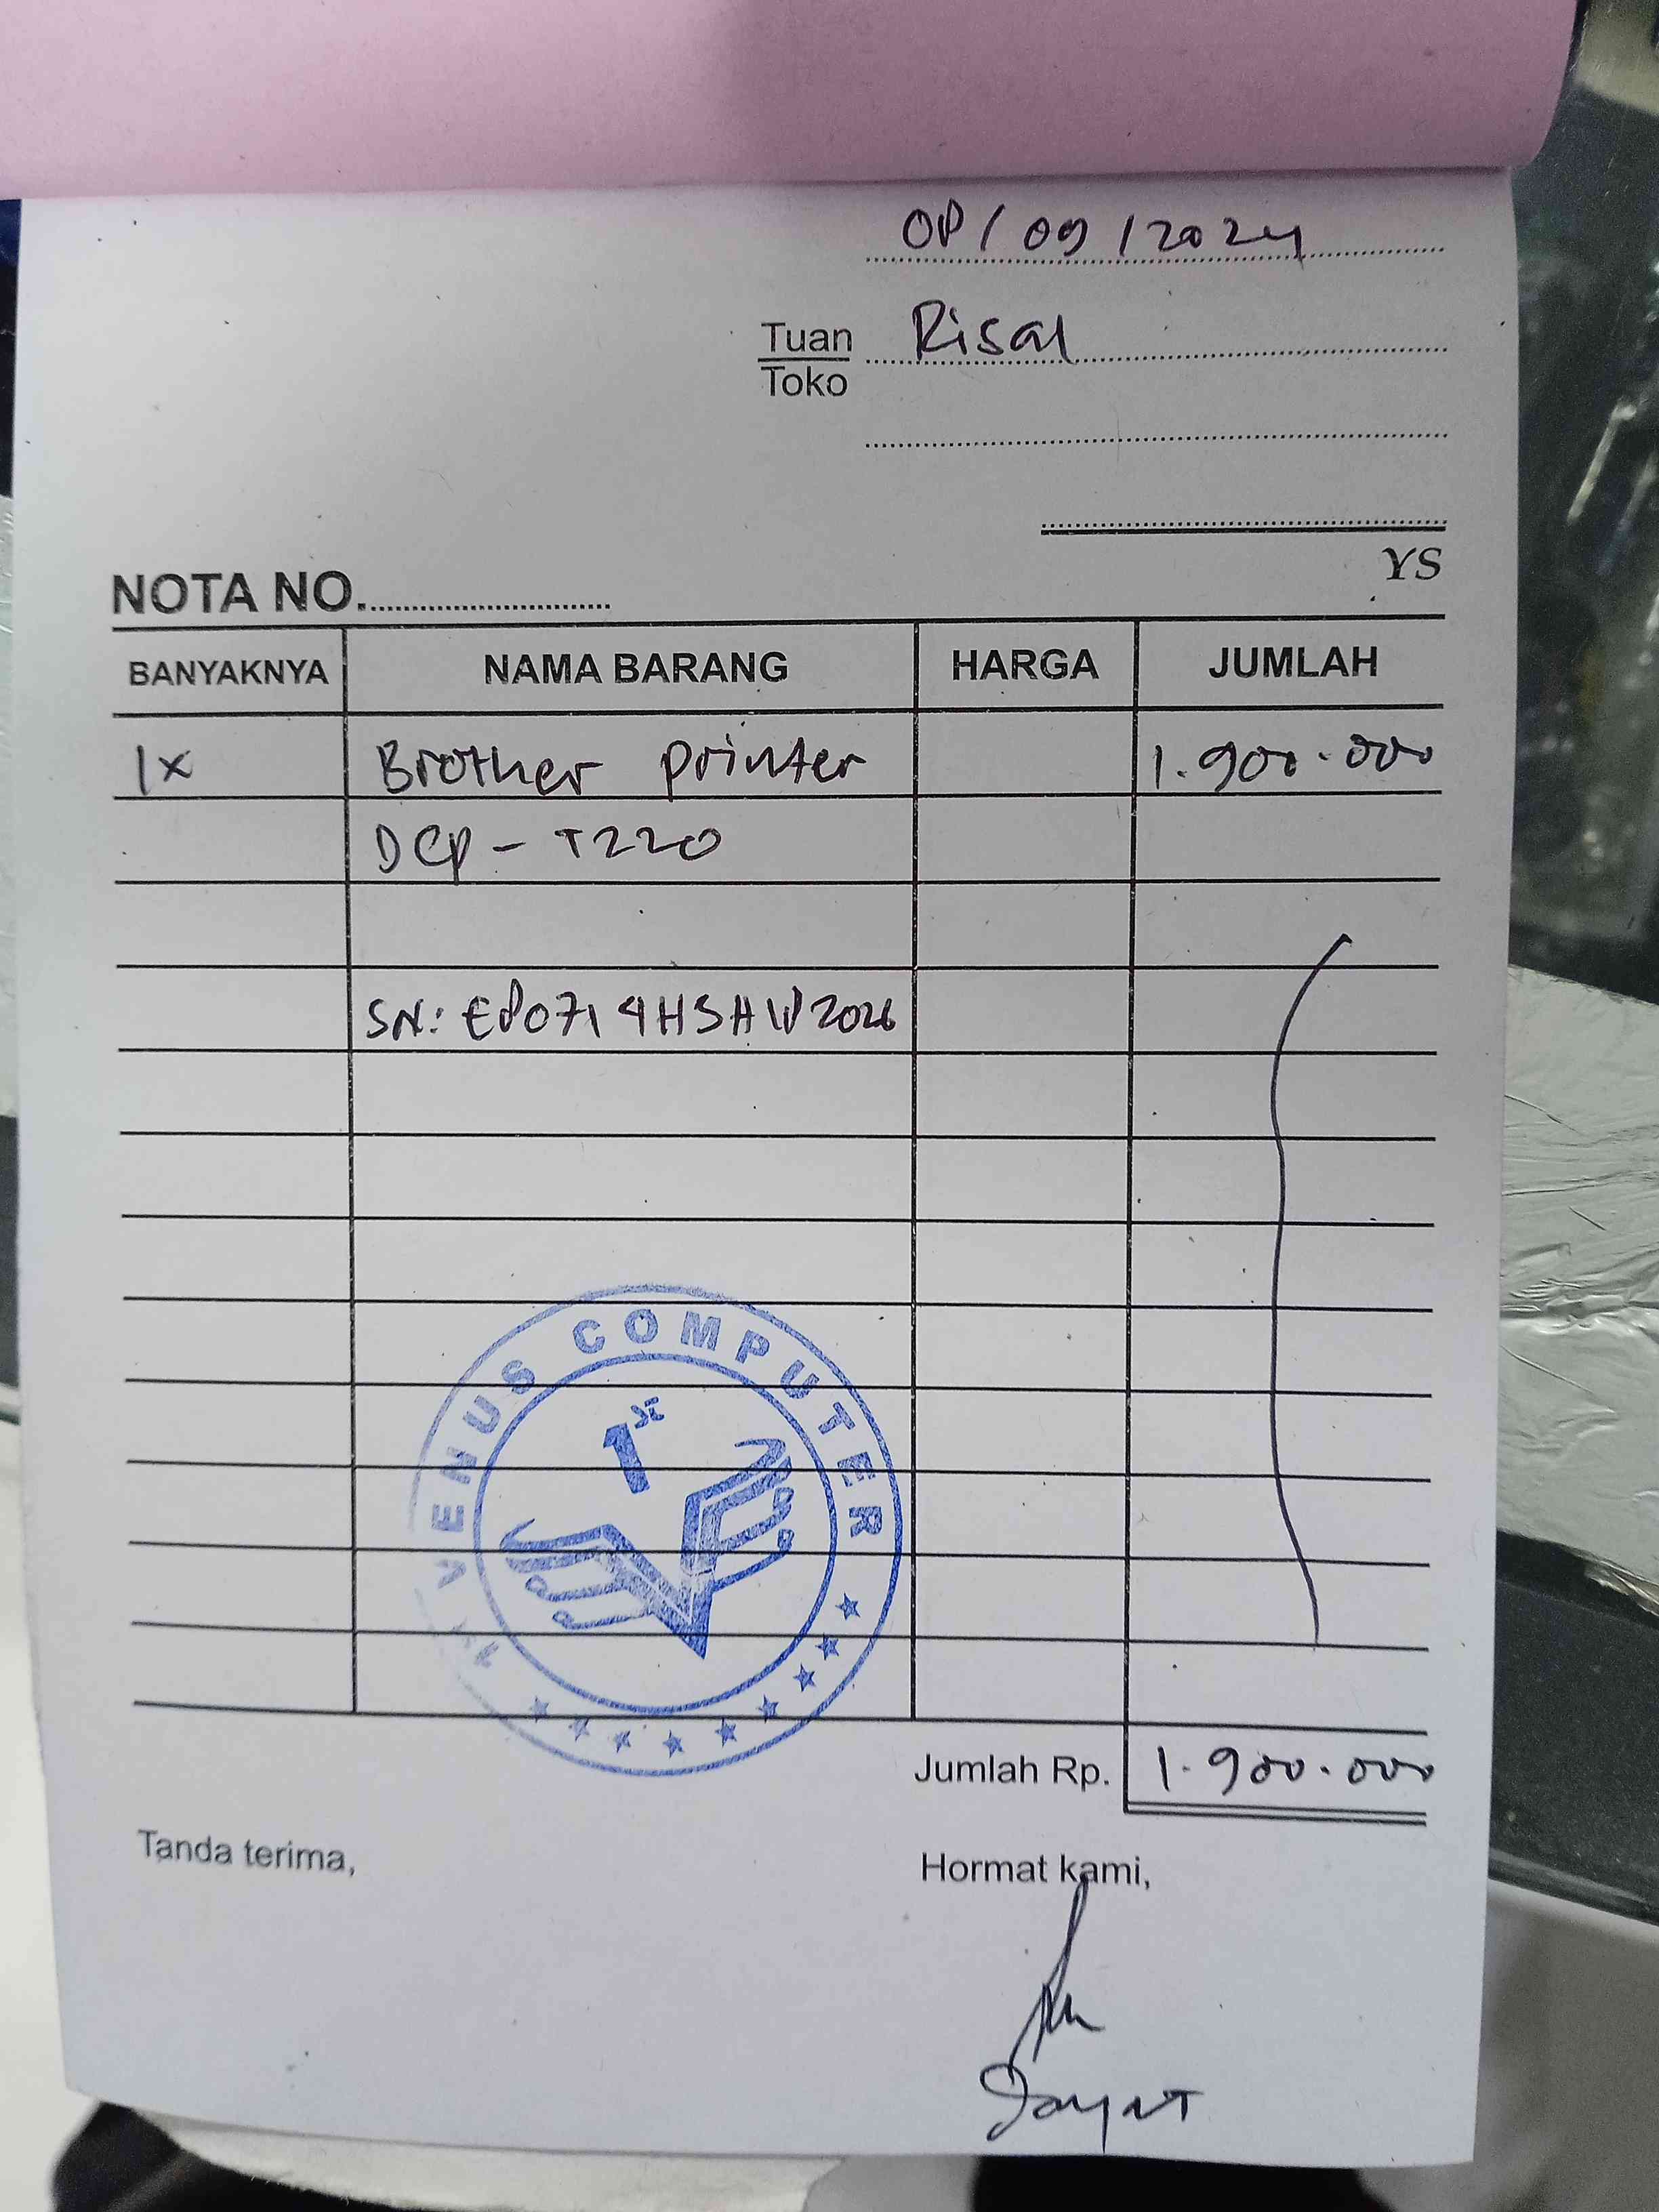 08/09/2024
Tuan Risal
Toko
YS
NOTA NO.
BANYAKNYA NAMA BARANG HARGA JUMLAH
1x Brother printer 1.900.000
DCP-T220
SN: E80719H3HW2026
VENUS COMPUTER
1st
Jumlah Rp. 1.900.000
Tanda terima, Hormat kami,